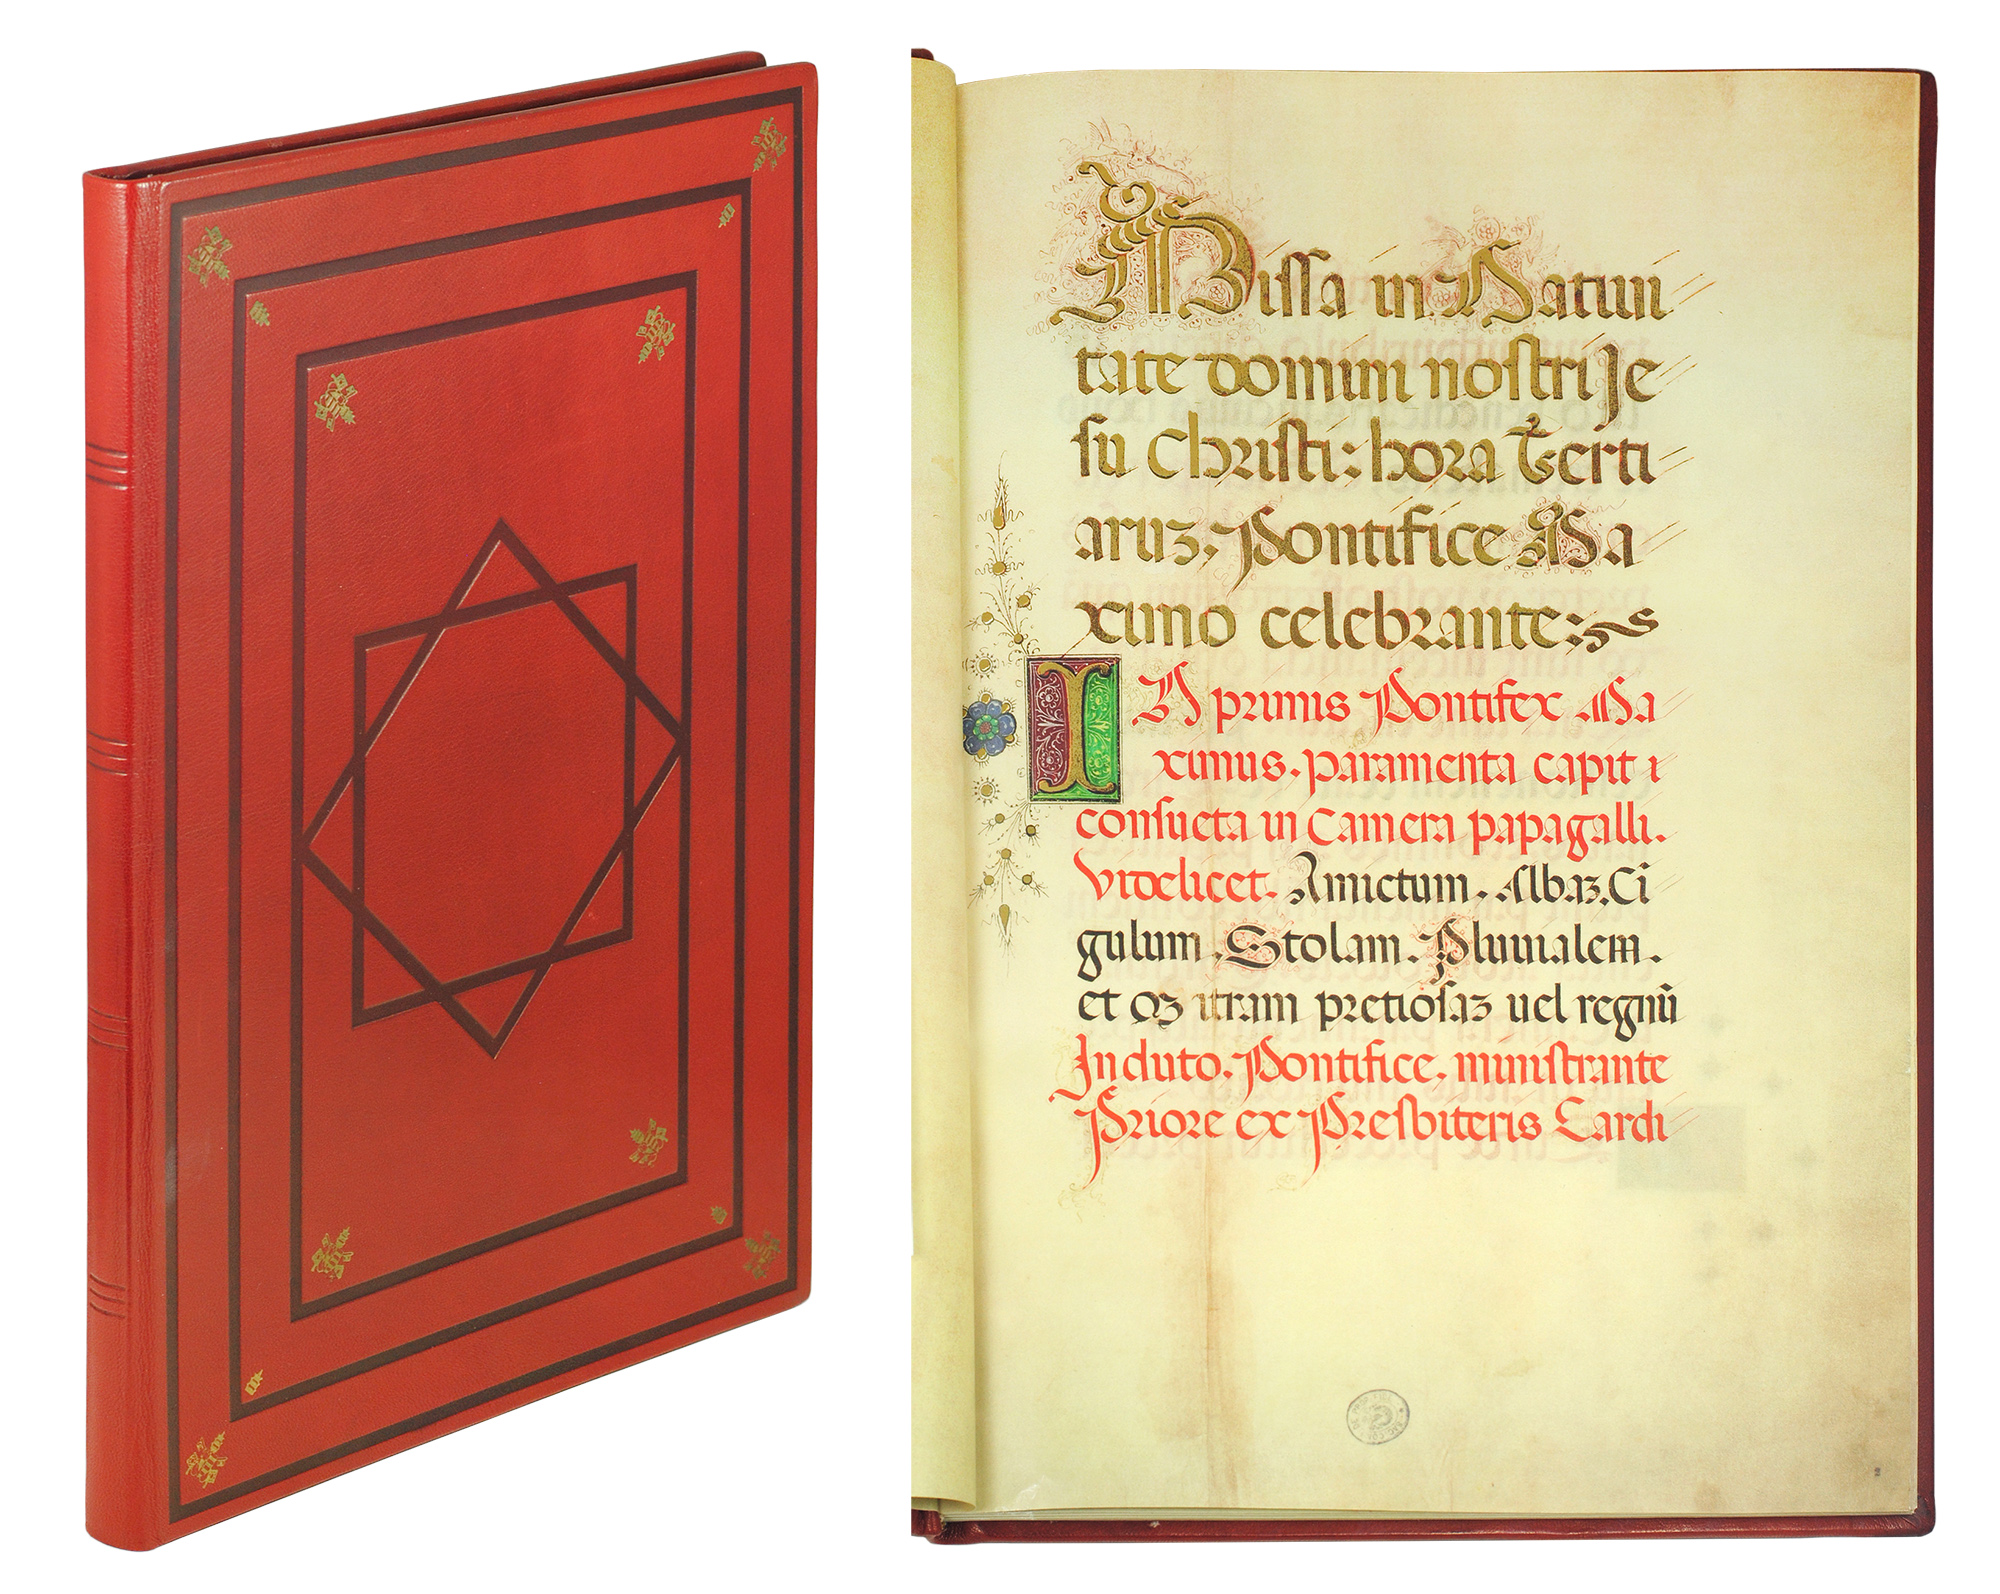 Missa in Natiui
tate domini nostri Je
su Christi: hora Terti
aruꝫ. Pontifice Ma
ximo celebrante:
IN primis Pontifex Ma
ximus. paramenta capit i
consueta in Camera papagalli.
Videlicet. Amictum. Albaꝫ. Ci
gulum. Stolam. Pluuialem.
et mitram pretiosaꝫ uel regnū
Induto. Pontifice. ministrante
Priore ex Presbiteris Cardi
2